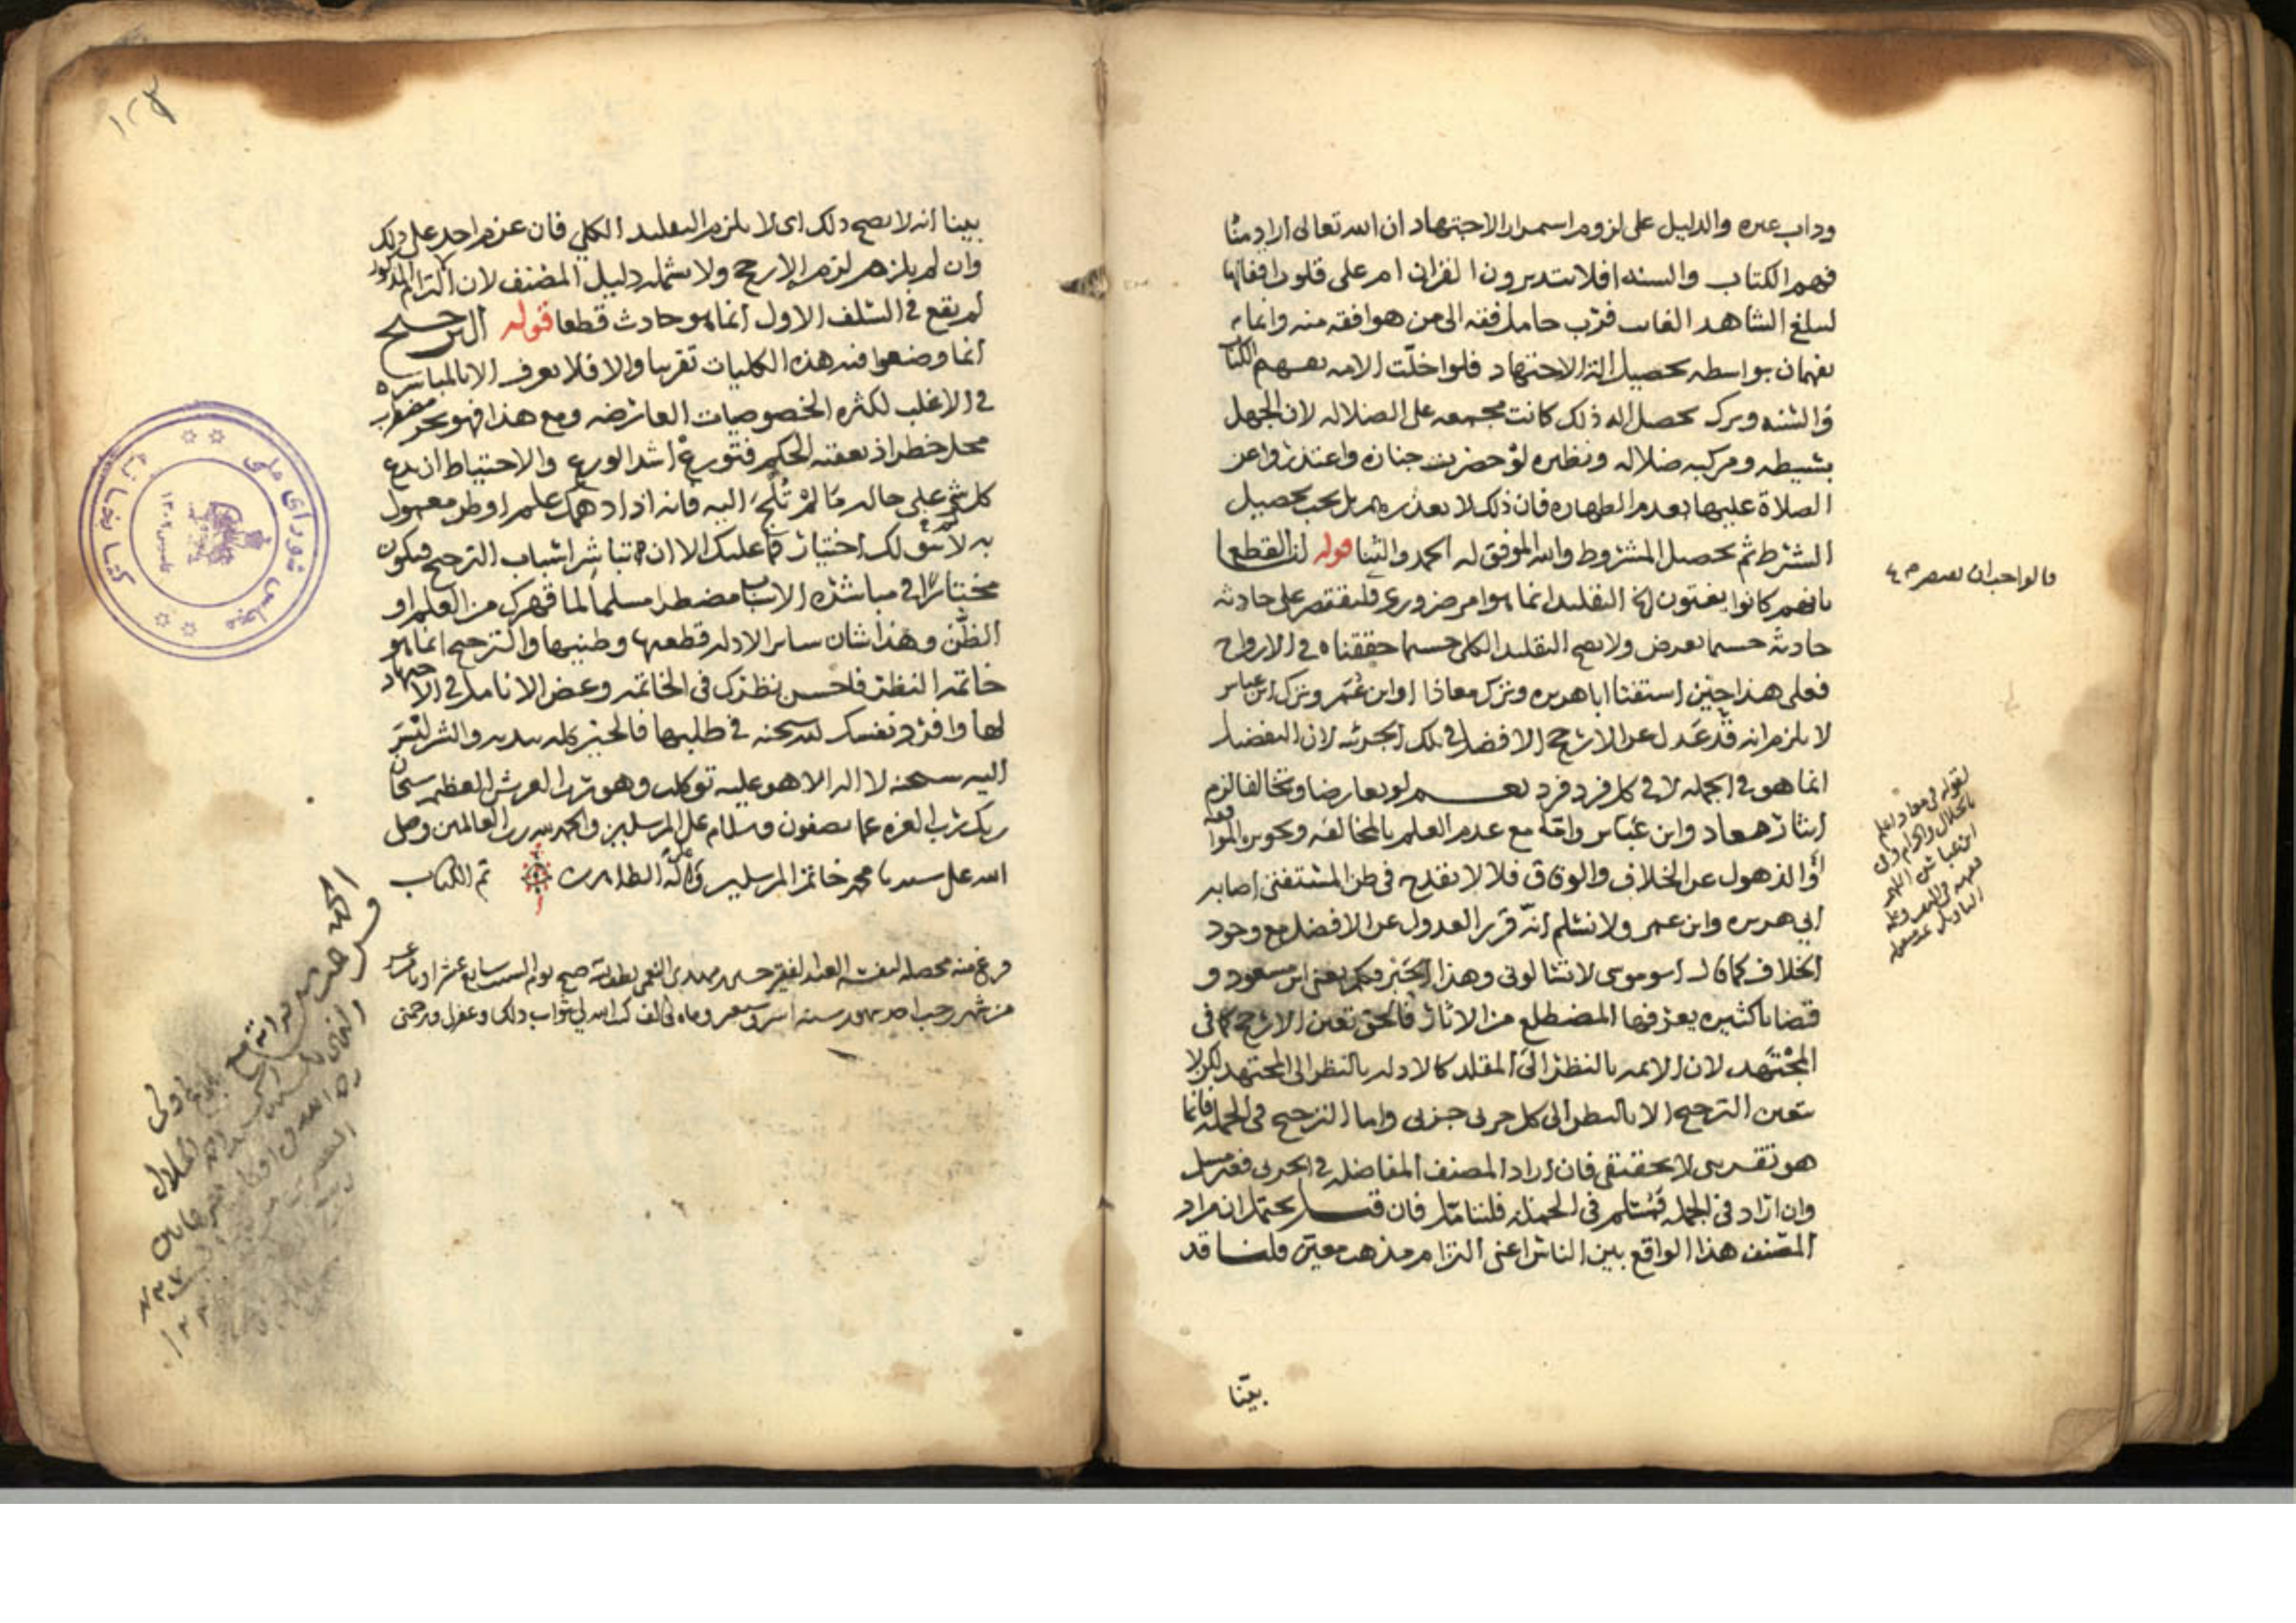 وداب غيره والدليل على لزوم استمرار الاجتهاد ان الله تعالى اراد منا
فهم الكتاب والسنه افلا يتدبرون القران ام على قلوب اقفالها
ليبلغ الشاهد الغايب فرب حامل فقه الى من هو افقه منه وانما
يفهمان بواسطه تحصيل الة الاجتهاد فلو اخلت الامه بفهم الكتاب
والسنه وترك تحصيل اله ذلك كانت مجمعه على الضلاله لان الجهل
بسيطه ومركبه ضلاله ونظيره لو حضرت جنازه واعتذروا عن
الصلاة عليها بعدم الطهاره فان ذلك لا يعذرهم بل يجب تحصيل
الشرط ثم تحصيل المشروط والله الموفق له الحمد والثنا قوله لنا القطع
بانهم كانوا يفتون الخ التقليد انما هو امر ضروري فليقتصر على حادثه
حادثه حسبما يعرض ولا يصح التقليد الكلي حسبما حققناه في الارواح
فعلى هذا حين استفتا ابا هريره وترك معاذا او ابن عمر وترك ابن عباس
لا يلزم انه قد عدل عن الارجح الافضل في تلك الجزئيه لان التفضيل
انما هو في الجمله لا في كل فرد فرد نعم لو تعارضا وتخالفا لزم
ايثار معاذ وابن عباس واما مع عدم العلم بالمخالفه وتجويز الموافقه
او الذهول عن الخلاف والوفاق فلا لا يقدح في ظن المستفتي اصابه
ابي هريره وابن عمر ولا نسلم انه قرر العدول عن الافضل مع وجود
الخلاف كما قال ابو موسى لا تسالوني وهذا الحبر فيكم يعني ابن مسعود و
قضايا كثيره يعرفها المضطلع من الاثار فالحق تعين الارجح كما في
المجتهد لان الايمه بالنظر الى المقلد كالادله بالنظر الى المجتهد لكن لا
يتعين الترجيح الا بالنظر الى كل جزئي جزئي واما الترجيح في الجمله فانما
هو تقريبي لا تحقيقي فان اراد المصنف المفاضله في الجزئي فغير مسلم
وان اراد في الجمله فمسلم في الجمله فليتامل فان قيل يحتمل ان مراد
المصنف هذا الواقع بين الناس اعني التزام مذهب معين قلنا قد
بينا
قالوا احب ان
لقوله في معاذ اعلم
بالحلال والحرام وفي
ابن عباس اللهم
فقهه في الدين وعلمه
التاويل
بينا انه لا يصح ذلك اي لا يلزم التقليد الكلي فان عزم احد على ذلك
وان لم يلزمه لزم الارجح ولا يشمله دليل المصنف لان التزام المذكور
لم يقع في السلف الاول انما هو حادث قطعا قوله الترجيح
انما وضعوا فيه هذه الكليات تقريبا والا فلا يعرف الا بالمباشره
في الاغلب لكثره الخصوصيات العارضه ومع هذا فهو بحر مضطرب
محل خطر اذ يعقبه الحكم فتورع اشد الورع والاحتياط ان تدع
كل شي على حاله ما لم تلج اليه فانه اذا دهمك علم او ظن معمول
به لم يبق لك اختيار فما عليك الا ان تباشر اسباب الترجيح فتكون
مختارا في مباشره الاسباب مضطرا مسلما لما قهرك من العلم او
الظن وهذا شان ساير الادله قطعيها وظنيها والترجيح انما هو
خاتمه النظر فاحسن نظرك في الخاتمه وعض الانامل في الاجتهاد
لها وافزع بنفسك لله سبحنه في طلبها فالخير كله بيديه والشر ليس
اليه سبحنه لا اله الا هو عليه توكلت وهو رب العرش العظيم سبحان
ربك رب العزه عما يصفون وسلام على المرسلين والحمد لله رب العالمين وصلى
الله على سيدنا محمد خاتم المرسلين وعلى اله الطاهرين تم الكتاب
فرغ منه محصله لنفسه العبد الفقير حسين بن مهدي النعمي صبح يوم السبت سابع عشر او ثامن عشر
من شهر رجب احد شهور سنه وماه والف كتب الله لي ثواب ذلك وغفر لي ورحمني
الحمد لله
١٢٣
کتابخانه مجلس شورای ملی